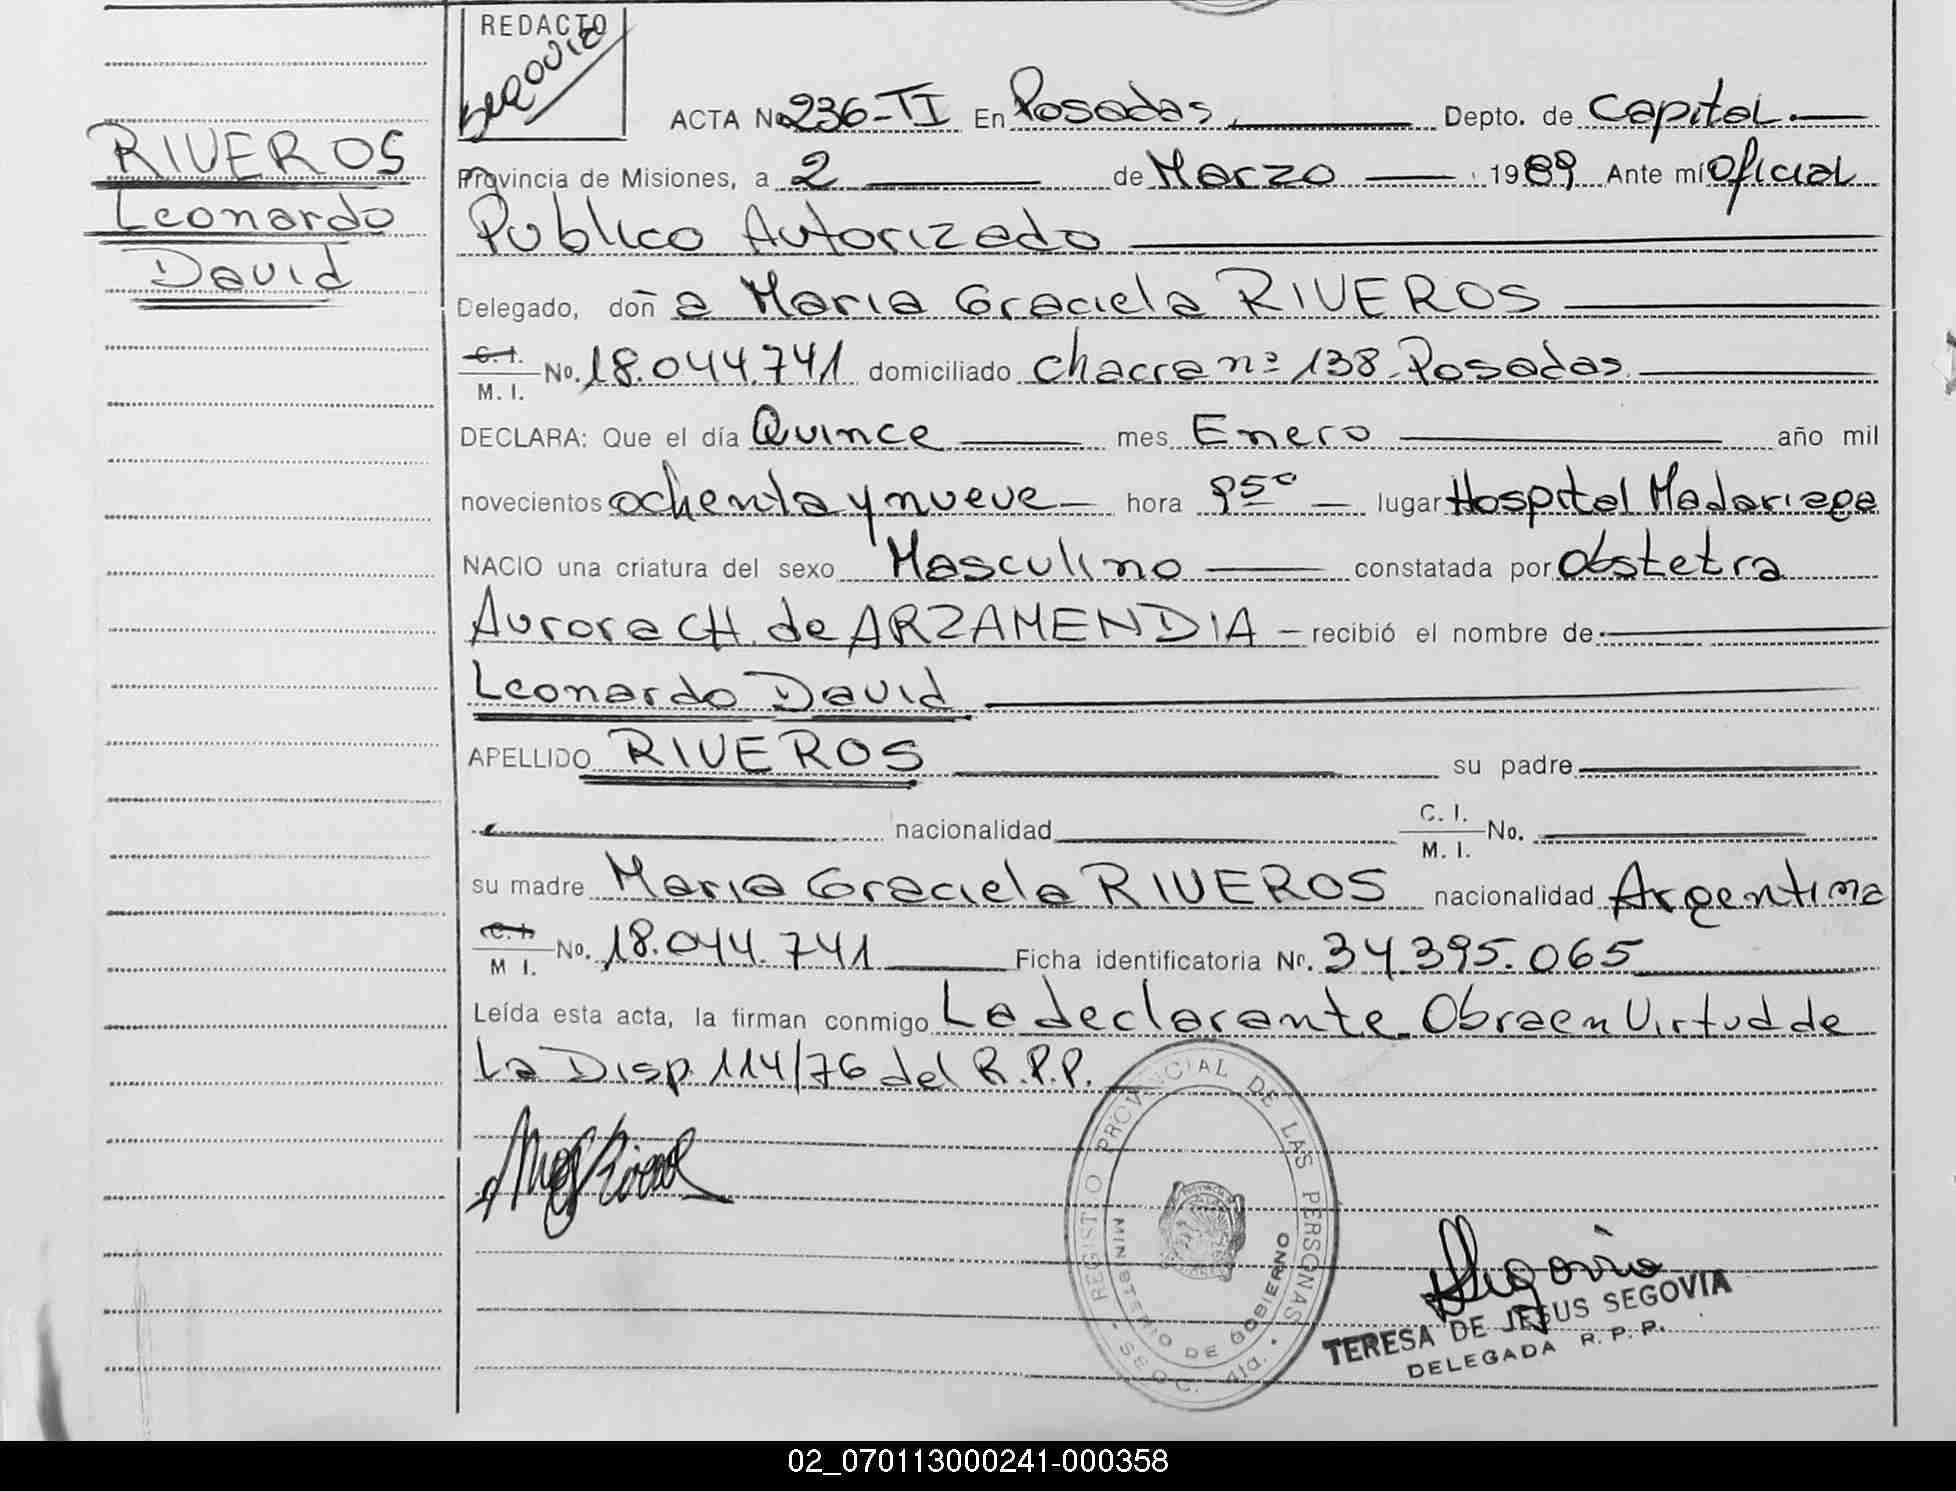 REDACTO
RIVEROS
Leonardo
David
ACTA No 236-TI En Posadas, Depto. de Capital.
Provincia de Misiones, a 2 de Marzo 1989 Ante mí Oficial
Publico Autorizado
Delegado, doña Maria Graciela RIVEROS
C. I.
M. I. No. 18.044.741 domiciliado chacra nº 138 Posadas.
DECLARA: Que el día Quince mes Enero año mil
novecientos ochenta y nueve hora 9 50 lugar Hospital Madariaga
NACIO una criatura del sexo Masculino constatada por Obstetra
Aurora CH. de ARZAMENDIA - recibió el nombre de
Leonardo David
APELLIDO RIVEROS su padre
nacionalidad C. I. M. I. No.
su madre Maria Graciela RIVEROS nacionalidad Argentina
C. I.
M I. No. 18.044.741 Ficha identificatoria Nº. 34.395.065
Leída esta acta, la firman conmigo La declarante. Obra en Virtud de
La Disp. 114/76 del R.P.P.
REGISTRO PROVINCIAL DE LAS PERSONAS
MINISTERIO DE GOBIERNO
SECC. 4ta.
Segovia
TERESA DE JESUS SEGOVIA
DELEGADA R. P. P.
02_070113000241-000358